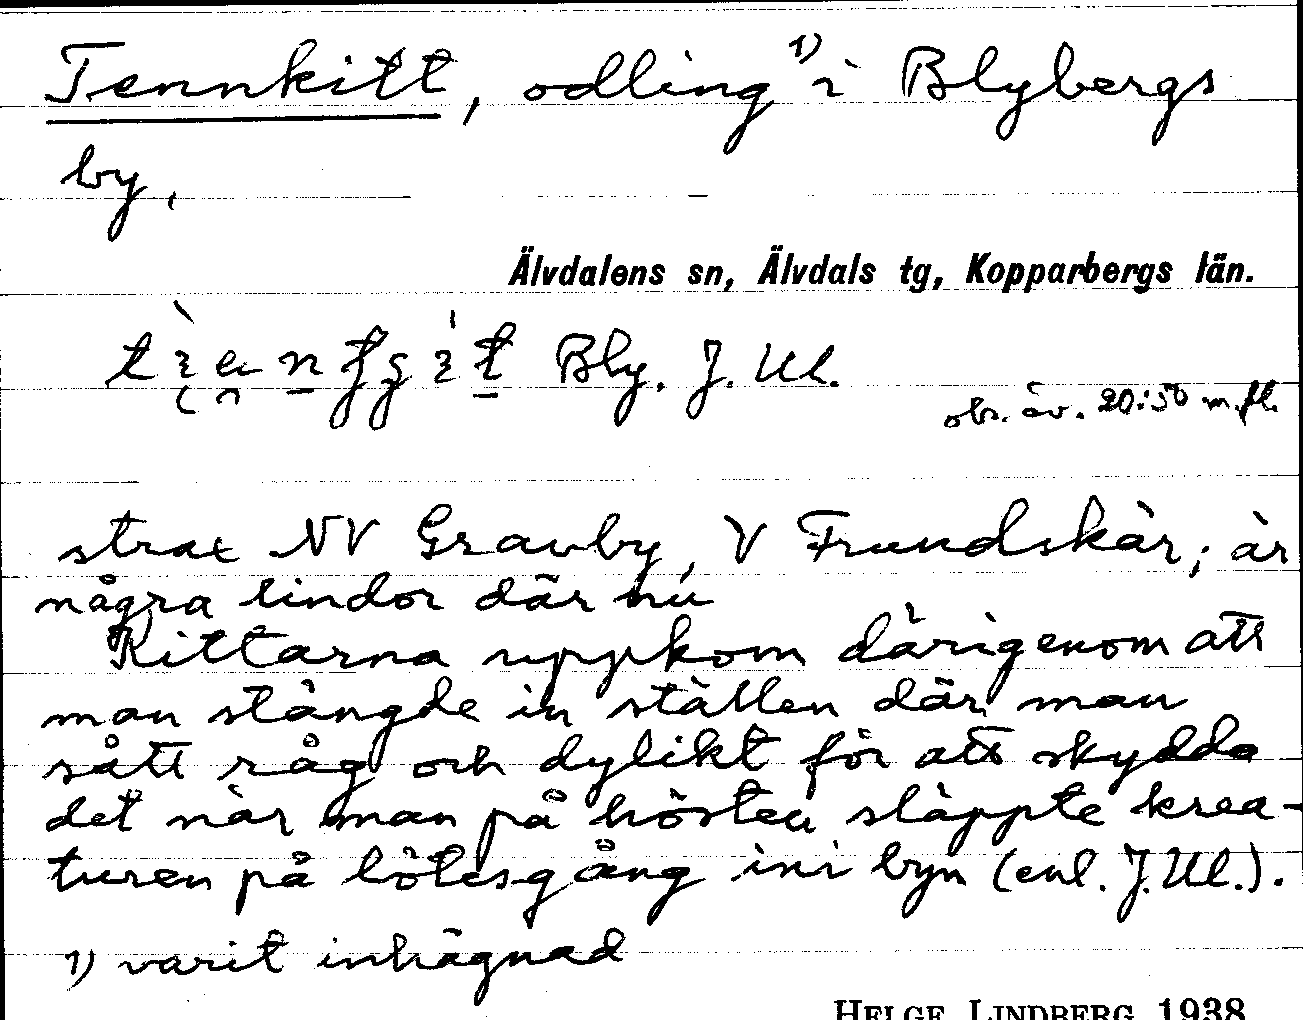 Tennkitt, odling 1) i Blybergs
by,
Älvdalens sn, Älvdals tg, Kopparbergs län.
Bly. J. Ul.
obs. äv. 20:50 m.fl.
strax NV Gravby, V Frundskär; är
några lindor där nu
Kittarna uppkom därigenom att
man stängde in ställen där man
sått råg och dylikt för att skydda
det när man på hösten släppte krea-
turen på lötesgång ini byn (enl. J. Ul.).
1) varit inhägnad
HELGE LINDBERG 1938